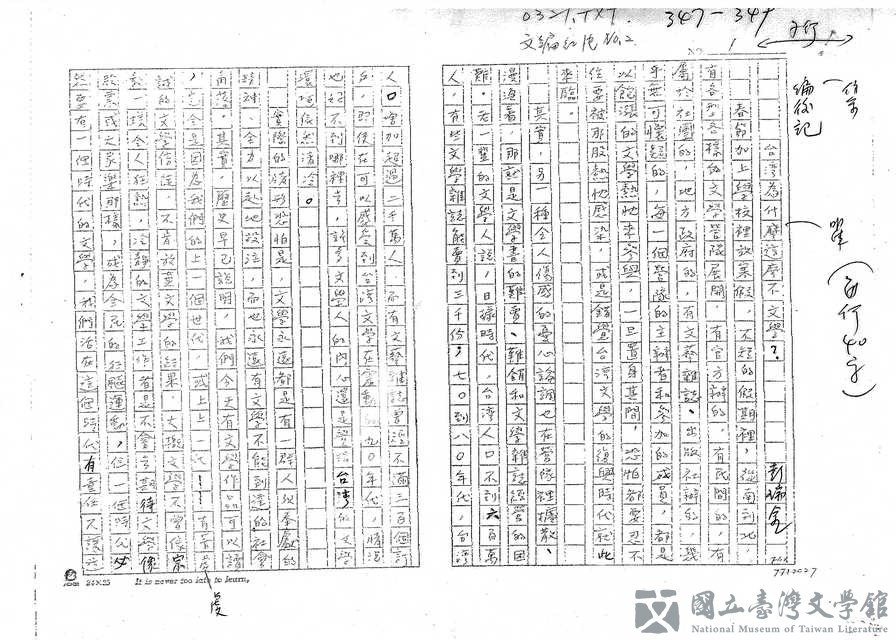 0321.TXT. 347-349
文編紅泡 No.2
No. 1
編後記
台灣為什麼這麼不文學?
彭瑞金
春節加上學校裡放寒假,不短的假期裡,從南到北,
有各型各樣的文學營隊展開,有官方辦的,有民間的,有
屬於社團的,地方政府的,有文藝雜誌、出版社辦的,幾
乎無可懷疑的,每一個營隊的主辦者和參加的成員,都是
以飽漲的文學熱忱來參與,一旦置身其間,恐怕都要忍不
住要被那股熱忱感染,或是錯覺台灣文學的復興時代就此
來臨。
其實,另一種令人傷感的憂心論調也在營隊裡擴散、
漫漶著,那就是文學書的難賣、難銷和文學雜誌經營的困
難。老一輩的文學人說,日據時代,台灣人口不到六百萬
人,有些文學雜誌能賣到三千份;七0到八0年代,台灣
人口會加超過二千萬人,而有文藝雜誌曾經不滿三百個訂
戶,即使在可以感受到台灣文學在震動的九0年代,情況
也好不到哪裡去,許多文學人的內心還是覺得台灣的文學
環境依然清冷。
實際的情形恐怕是,文學永遠都是有一群人以奉獻的
全力以赴地投注,而也永遠有文學不能到達的社會
角落,其實,歷史早已說明,我們今天有文學作品可以讀
,完全是因為我們的上一個世代,或上上一代——有著虔
誠的文學信徒,不肯放棄文學的結果。大概文學不曾像宗
教一樣令人狂熱,冷靜的文學工作者是不會主期待文學像
政黨或大家樂那樣,成為全民的紅軀運動,但一個時代必
然要有一個時代的文學,我們活在這個時代有責任不讓它
24×25
It is never too late to learn.
771.2027
國立臺灣文學館
National Museum of Taiwan Literature